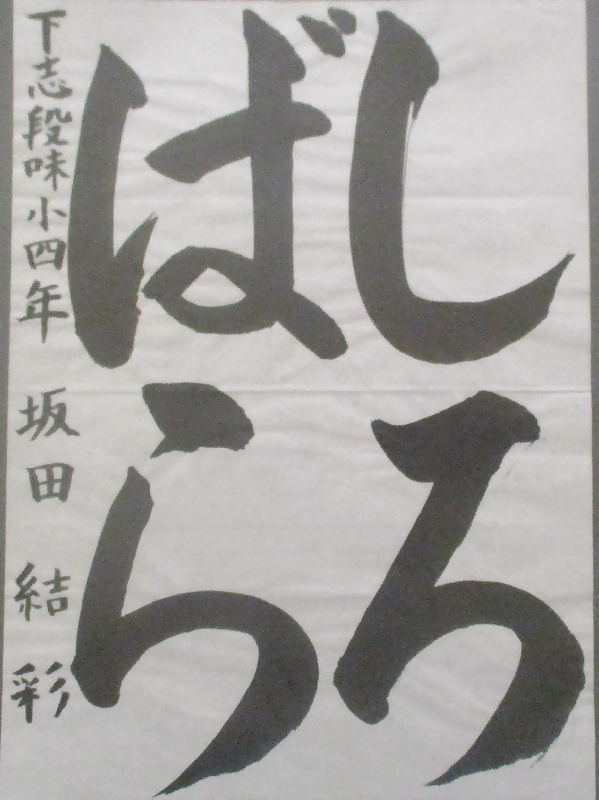 しろ
ばら
下志段味小四年 坂田結彩